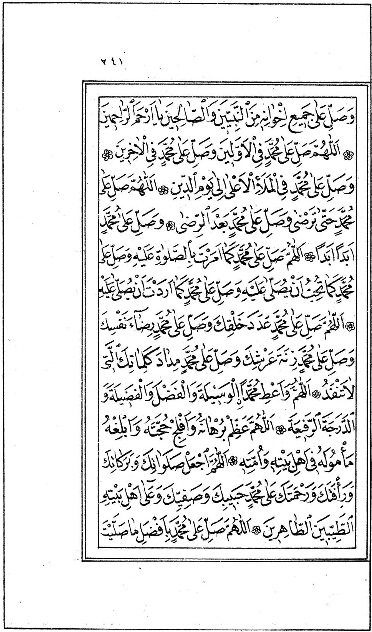 ٢٤١
وَصَلِّ عَلٰى جَمِيعِ اِخْوَانِهِ مِنَ النَّبِيّٖنَ وَالصَّالِحِينَ يَا اَرْحَمَ الرَّاحِمِينَ
۞ اَللّٰهُمَّ صَلِّ عَلٰى مُحَمَّدٍ فِي الْاَوَّلِينَ وَصَلِّ عَلٰى مُحَمَّدٍ فِي الْاٰخِرِينَ ۞
وَصَلِّ عَلٰى مُحَمَّدٍ فِي الْمَلَاِ الْاَعْلٰى اِلٰى يَوْمِ الدِّينِ ۞ اَللّٰهُمَّ صَلِّ عَلٰى
مُحَمَّدٍ حَتّٰى تَرْضٰى وَصَلِّ عَلٰى مُحَمَّدٍ بَعْدَ الرِّضٰى ۞ وَصَلِّ عَلٰى مُحَمَّدٍ
اَبَدًا اَبَدًا ۞ اَللّٰهُمَّ صَلِّ عَلٰى مُحَمَّدٍ كَمَا اَمَرْتَ بِالصَّلٰوةِ عَلَيْهِ وَصَلِّ عَلٰى
مُحَمَّدٍ كَمَا تُحِبُّ اَنْ يُصَلّٰى عَلَيْهِ وَصَلِّ عَلٰى مُحَمَّدٍ كَمَا اَرَدْتَ اَنْ يُصَلّٰى عَلَيْهِ
۞ اَللّٰهُمَّ صَلِّ عَلٰى مُحَمَّدٍ عَدَدَ خَلْقِكَ وَصَلِّ عَلٰى مُحَمَّدٍ رِضَاءَ نَفْسِكَ
وَصَلِّ عَلٰى مُحَمَّدٍ زِنَةَ عَرْشِكَ وَصَلِّ عَلٰى مُحَمَّدٍ مِدَادَ كَلِمَاتِكَ الَّتِي
لَا تَنْفَدُ ۞ اَللّٰهُمَّ وَاَعْطِ مُحَمَّدًا الْوَسِيلَةَ وَالْفَضْلَ وَالْفَضِيلَةَ وَ
الدَّرَجَةَ الرَّفِيعَةَ ۞ اَللّٰهُمَّ عَظِّمْ بُرْهَانَهُ وَاَفْلِجْ حُجَّتَهُ وَاَبْلِغْهُ
مَأْمُولَهُ فِي اَهْلِ بَيْتِهِ وَاُمَّتِهِ ۞ اَللّٰهُمَّ اجْعَلْ صَلَوَاتِكَ وَبَرَكَاتِكَ
وَرَأْفَتَكَ وَرَحْمَتَكَ عَلٰى مُحَمَّدٍ حَبِيبِكَ وَصَفِيِّكَ وَعَلٰى اَهْلِ بَيْتِهِ
الطَّيِّبِينَ الطَّاهِرِينَ ۞ اَللّٰهُمَّ صَلِّ عَلٰى مُحَمَّدٍ بِاَفْضَلِ مَا صَلَّيْتَ